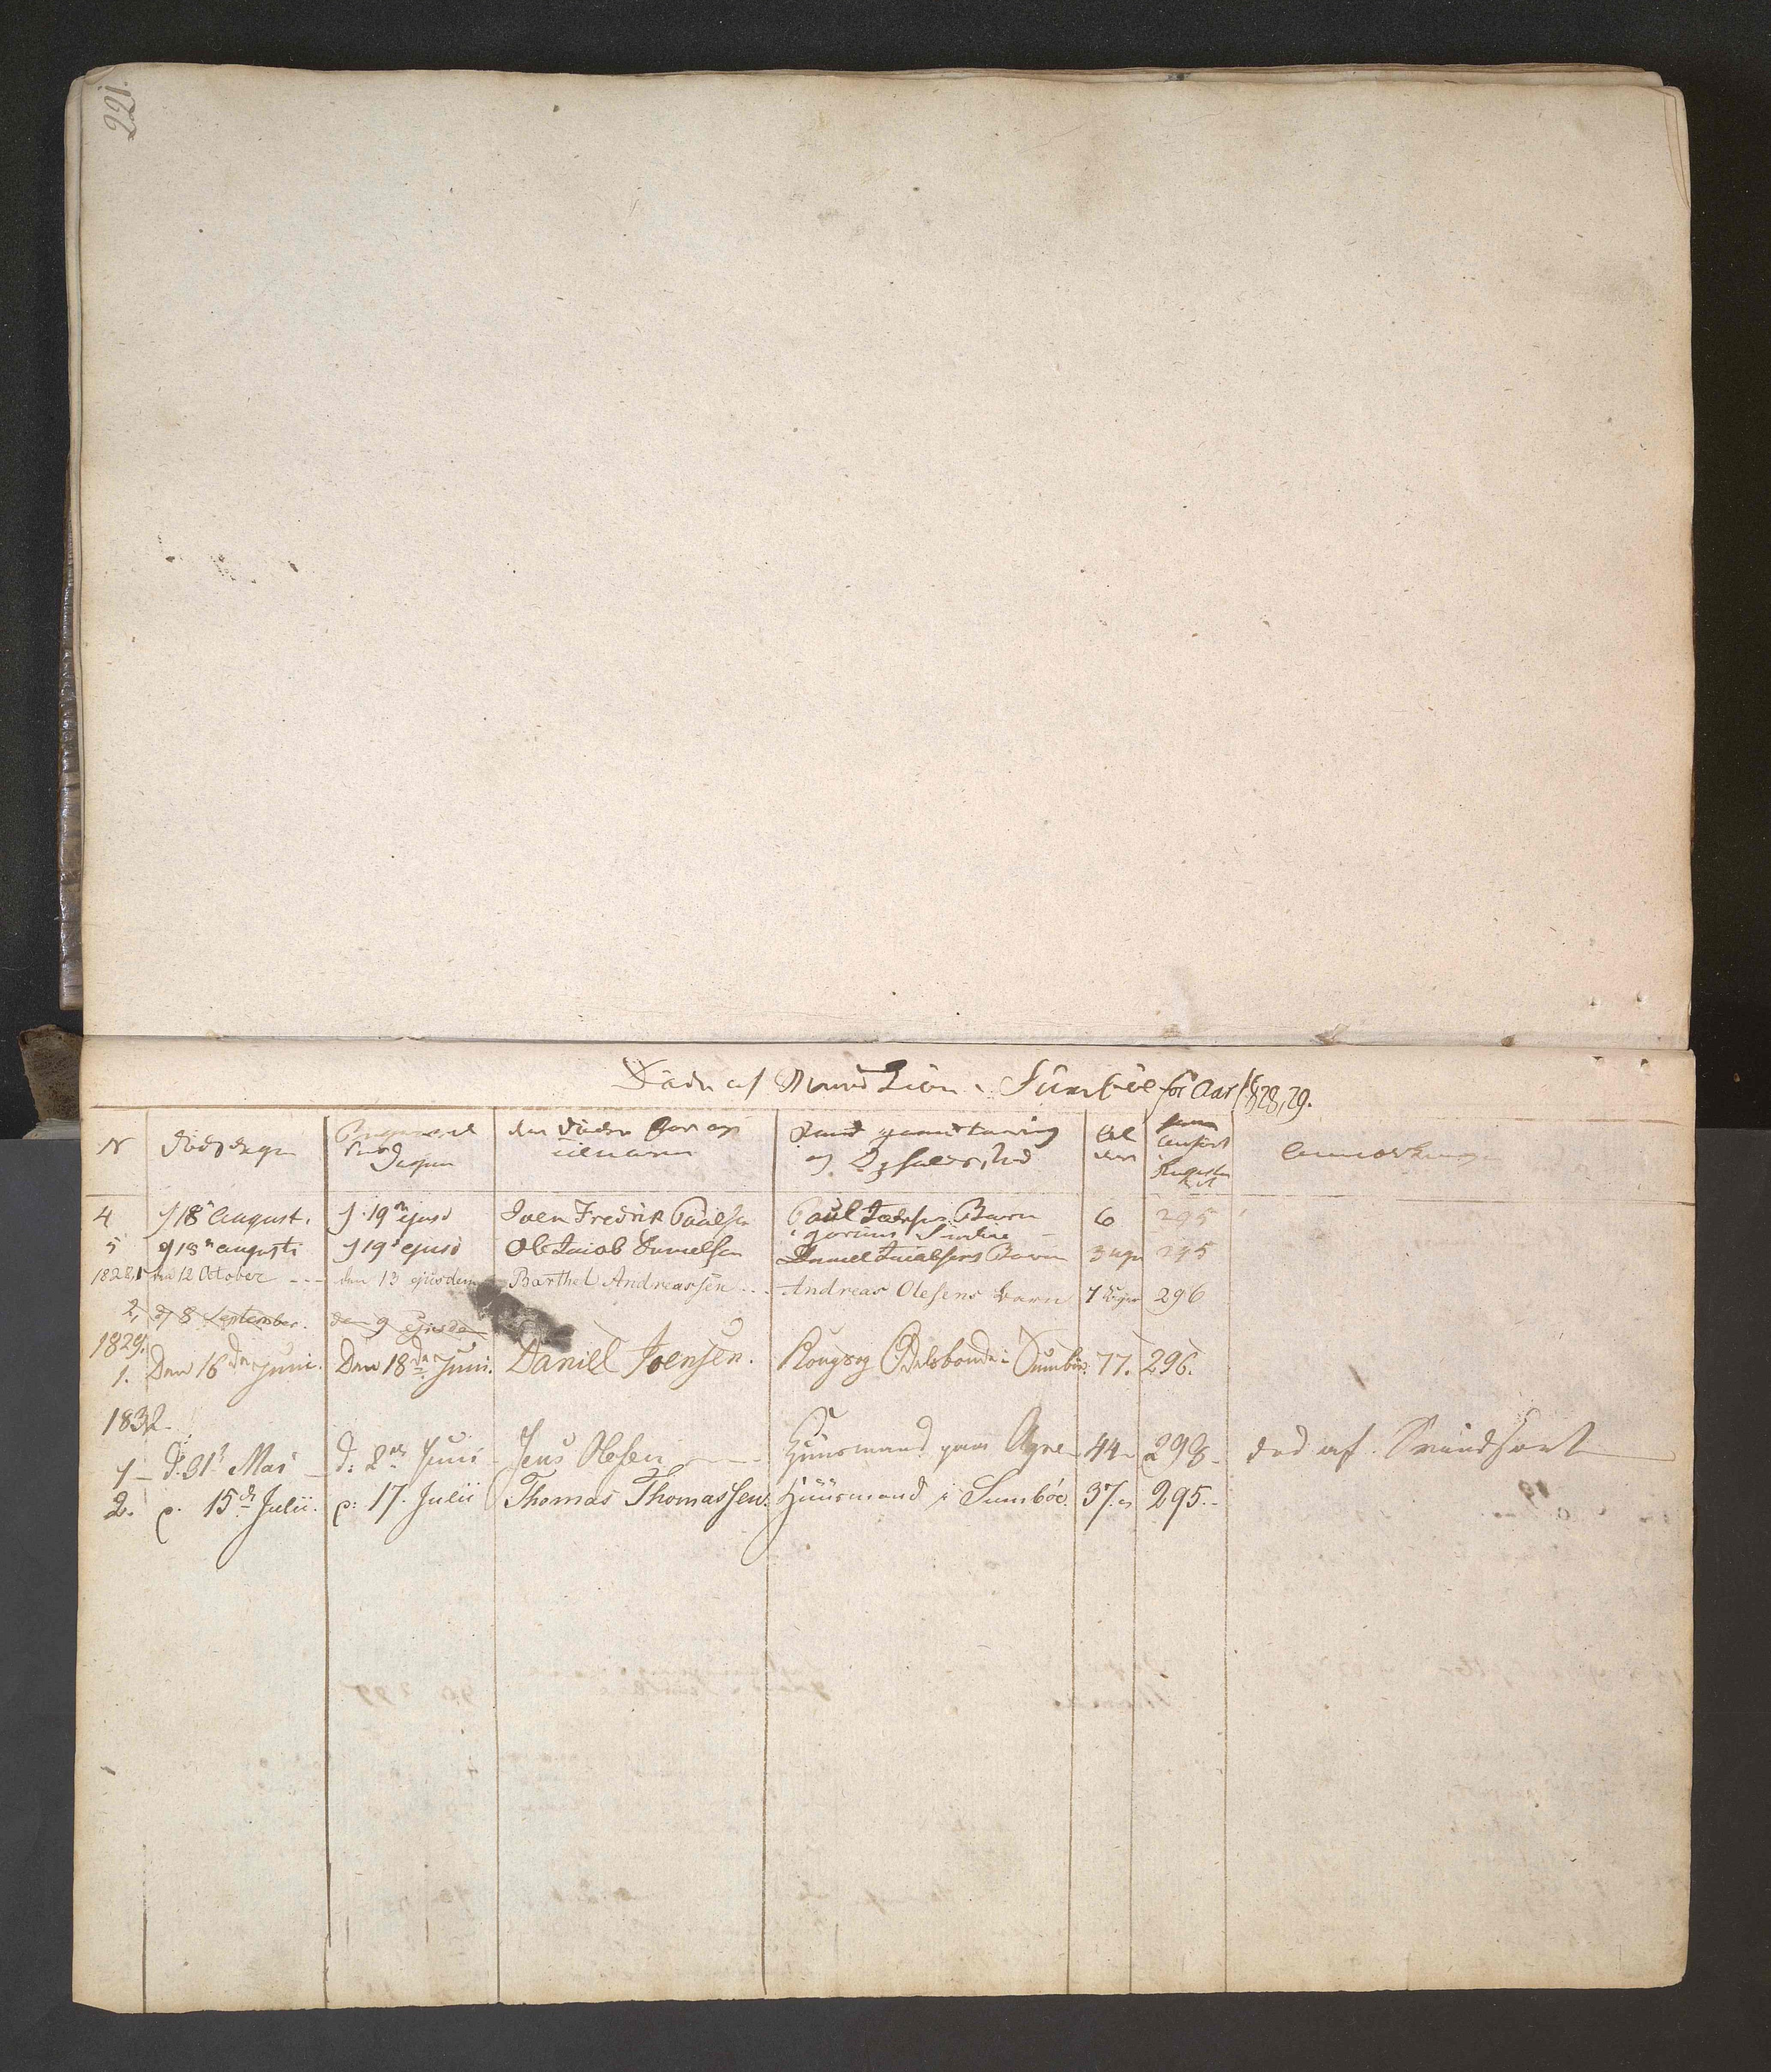 221.
Døde af Mand Kiøn i Sumböe for Aar 1828, 29.
N Døds dagen Begravelses Dagen den Dødes For og Tilnavn Stand Haandtæring og Opholdssted Al deren Anført Anmærkninger
4 d 18 August. d. 19 ejusd Joen Fredrik Paulsen Paul Barn 6 295
5 d 18 augusti d 19 ejusd Ole Jacob Danielsen Daniel Jacobsens Barn 3 uger 295
1828, 1 den 12 October - - - den 13 ejusdem Barthel Andreassen - - - Andreas Olesens barn 7 Uger 296
2, d 8 September. den 9 Ejusdem
1829.
1. Den 16de Juni. Den 18de Juni. Daniel Joensen. Konge og Odelsbonde i Sumböe. 77. 296.
1832.
1 - d. 31t Mai - d: 2den Juni - Jens Olesen - - - Huusmand paa - 44 - 298 - død af
2. d. 15de Julii. d: 17. Julii Thomas Thomassen. Huusmand i Sumböe. 37. 295. -